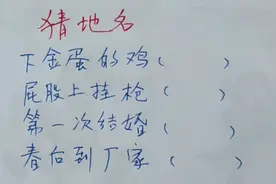 猜地名
下金蛋的鸡（ ）
屁股上挂枪（ ）
第一次结婚（ ）
春台到丁家（ ）